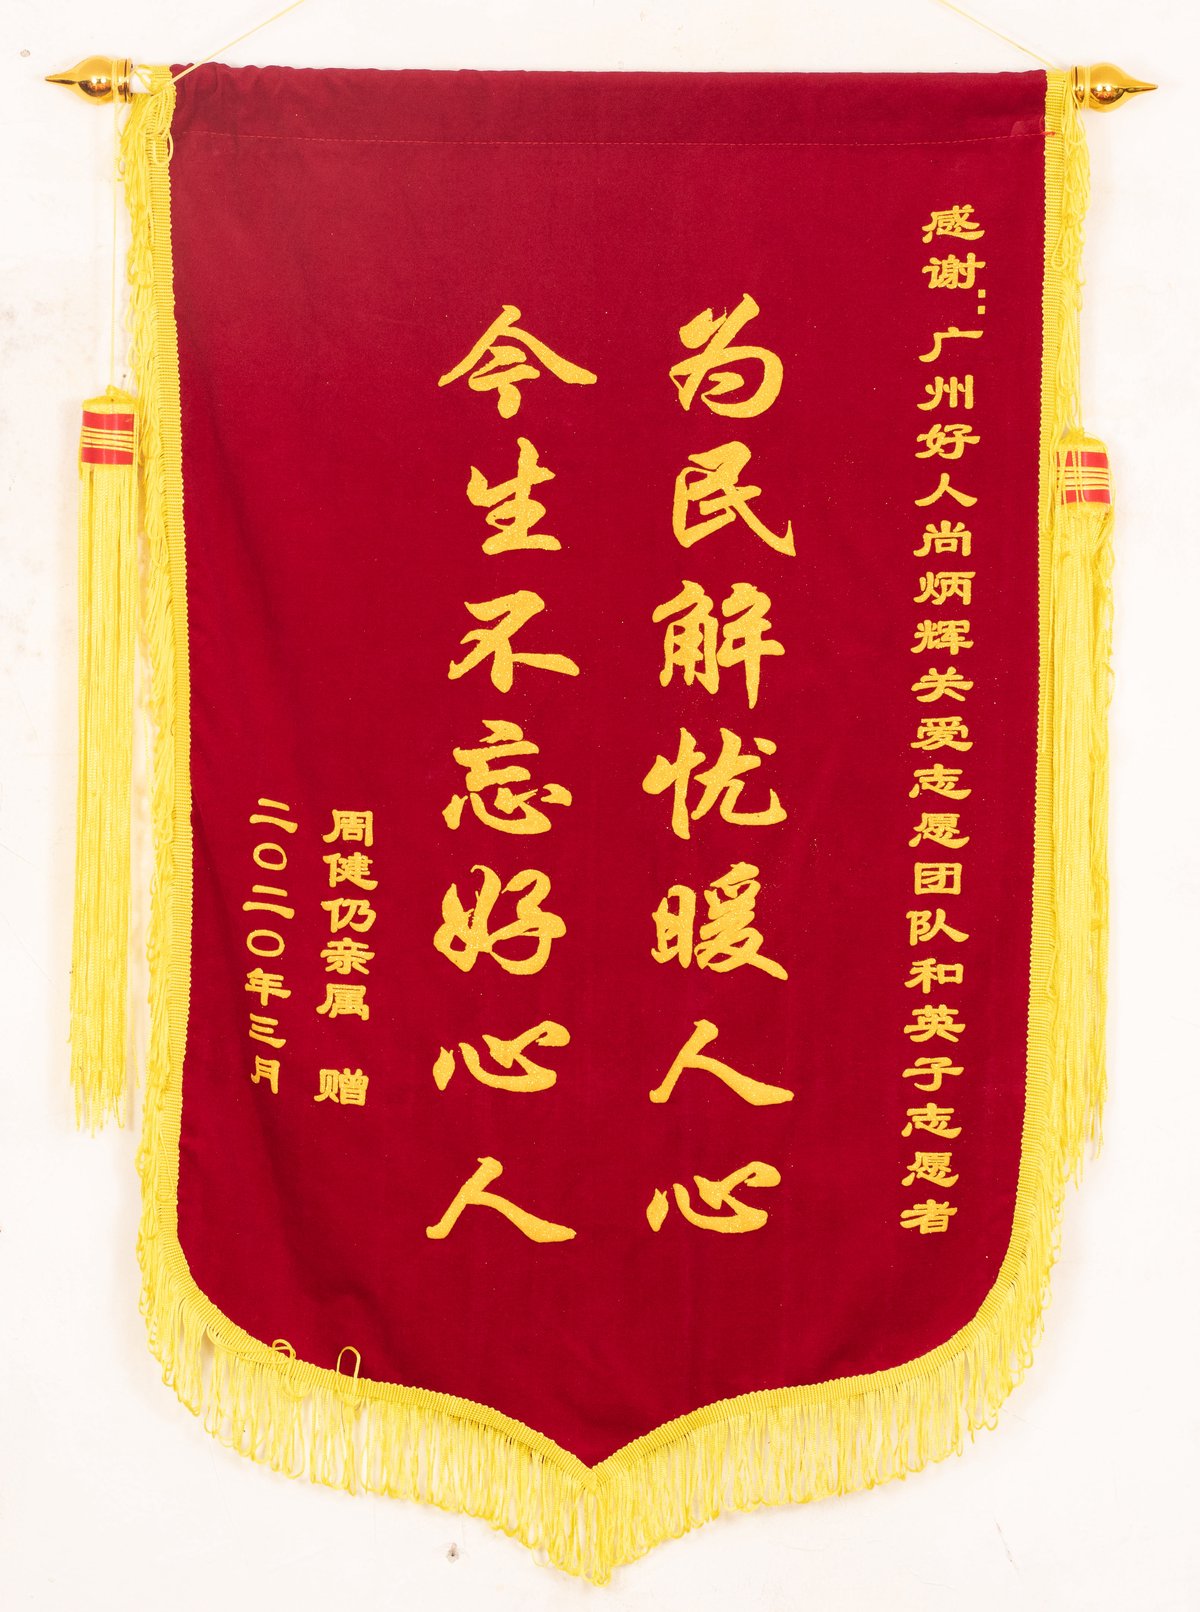 感谢：广州好人尚炳辉关爱志愿团队和英子志愿者
为民解忧暖人心
今生不忘好心人
周健仍亲属 赠
二〇二〇年三月